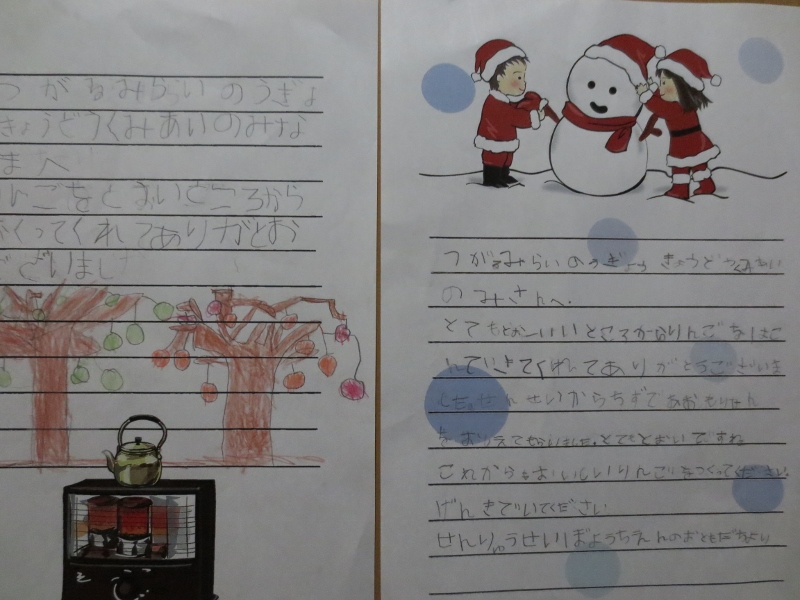 つがるみらいのうぎょ
きょうどうくみあいのみな
まへ
んごをとおいところから
くってくれてありがとお
ございまし
つがるみらいのうぎょう きょうどうくみあい
のみさんへ.
とてもとおーいいところからりんごをはこ
んできてくれてありがとうございま
した。せんせいからちずであおもりけん
をおしえてもらいました。とてもとおいですね
これからもおいしいりんごをつくってください。
げんきでいてください
せんりゅうせいぼようちえんのおともだちより